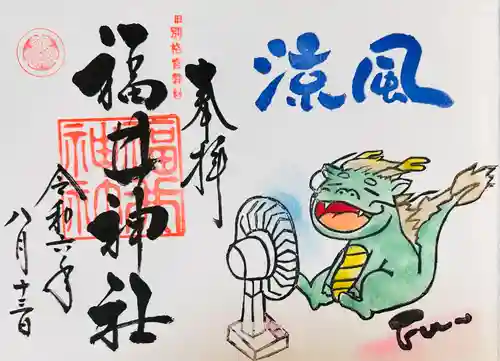 涼風
奉拝
旧別格官幣社
福井神社
福井
神社
令和六年
八月十三日